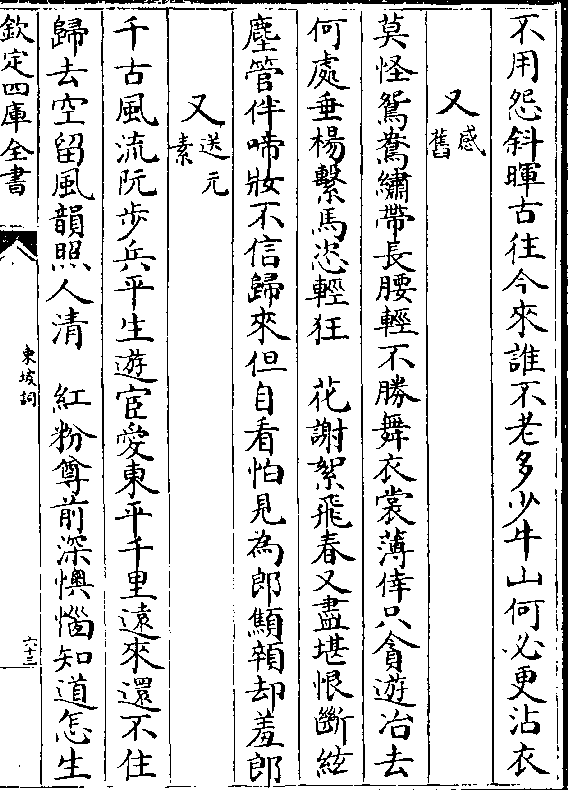 不用怨斜暉古往今來誰不老多少牛山何必更沾衣
又感舊
莫怪鴛鴦繡帶長腰輕不勝舞衣裳薄倖只貪遊冶去
何處垂楊繫馬恣輕狂　花謝絮飛春又盡堪恨斷絃
塵管伴啼妝不信歸來但自看怕見為郎顦顇却羞郎
又送元素
千古風流阮步兵平生遊宦愛東平千里遠來還不住
歸去空留風韻照人清　紅粉尊前深懊惱知道怎生
欽定四庫全書
東坡詞
六十三